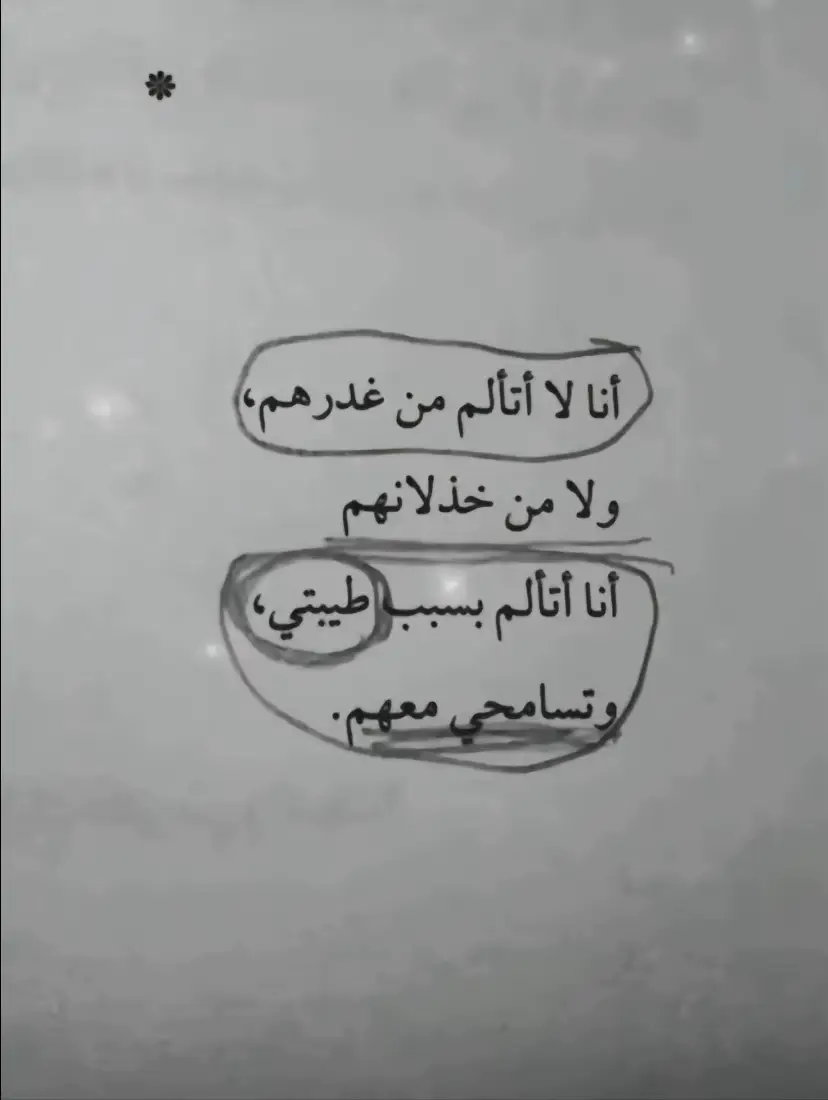 أنا لا أتألم من غدرهم،
ولا من خذلانهم
أنا أتألم بسبب طيبتي،
وتسامحي معهم.